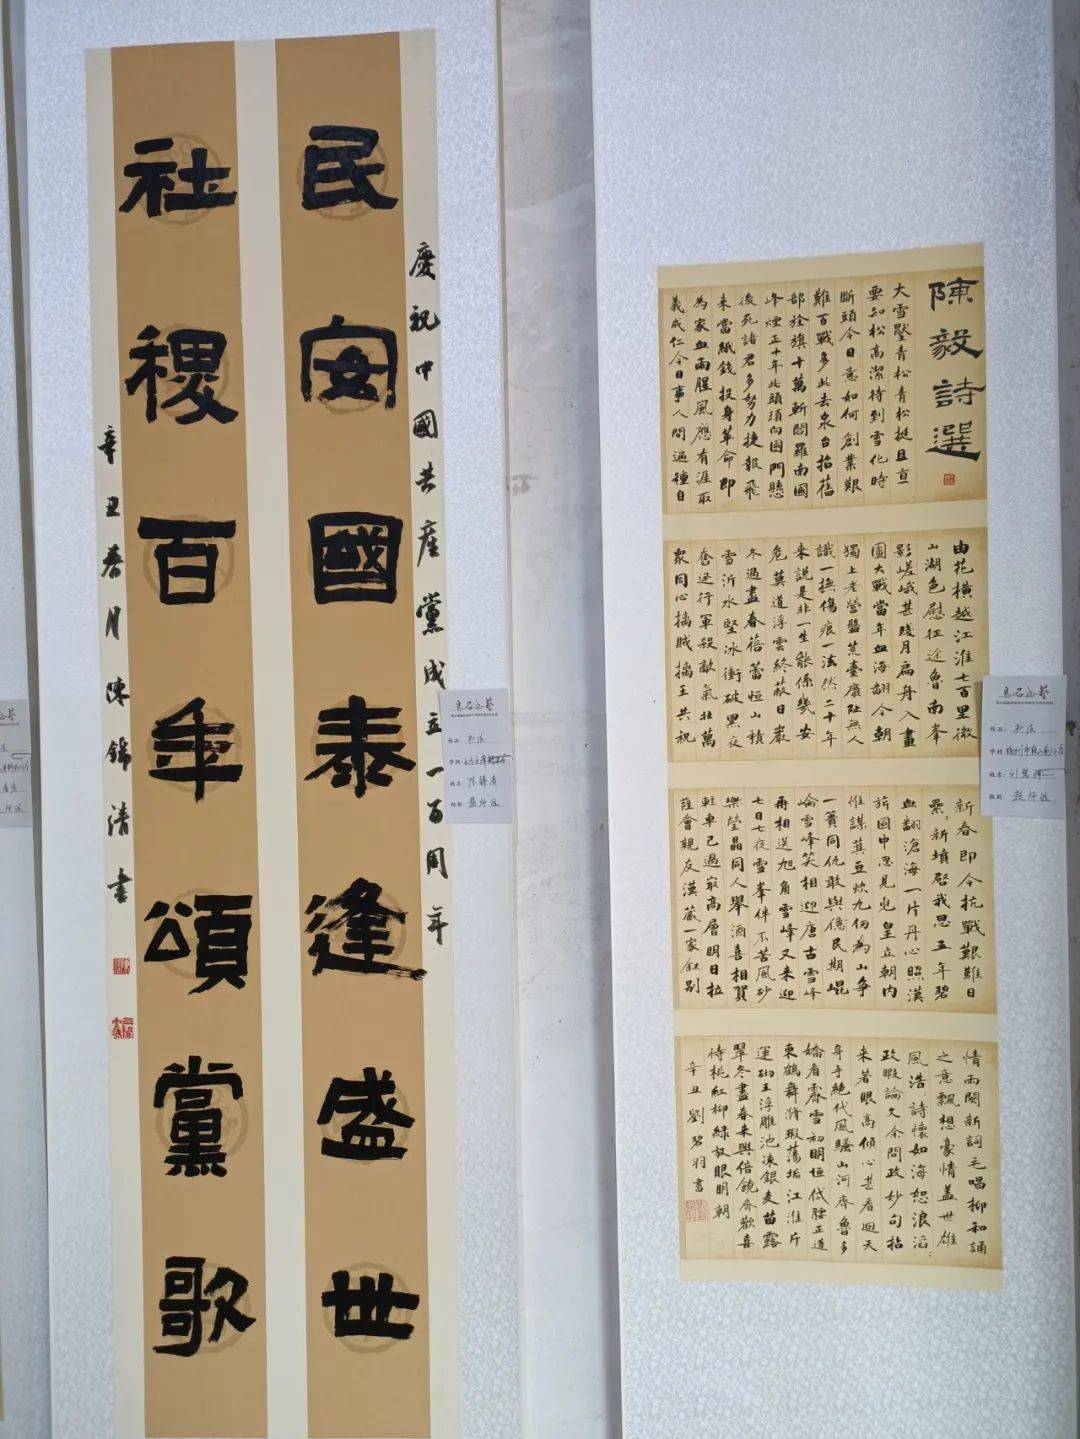 慶祝中國共産黨成立一百周年
民安國泰逢盛世
社稷百年頌黨歌
辛丑春月陳錦清書
陳毅詩選
大雪壓青松青松挺且直
要知松高潔待到雪化時
斷頭今日意如何創業艱
難百戰多此去泉台招舊
部旌旗十萬斬閻羅南國
峰煙正十年此頭須向國門懸
後死諸君多努力捷報飛
来當紙錢投身革命即
為家血雨腥風應有涯取
義成仁今日事人間遍種自
由花橫越江淮七百里微
山湖色慰征途魯南峯
影嵯峨甚殘月扁舟入畫
圖大戰當年血海翻今朝
獨上老營盤荒臺廢址無人
識一撫傷痕一泫然二十年
来說是非一生能係幾安
危莫道浮雲終蔽日嚴
冬過盡春蓓蕾恒山積
雪沂水堅冰衝破黑夜
奮逕行軍殺敵氣壯萬
眾同心擒賊擒王共祝
新春即今抗戰艱難日
纍纍新墳啓我思五年碧
血翻滄海一片丹心照漢
旂國中忍見兇皇立朝内
惟謀萁豆炊九仞為山争
一簣同仇敢與億民期崐
崙雪峰笑相迎唐古雪峰
再相送旭角雪峰又来迎
七日七夜雪峯伴不苦風砂
樂瑩晶同人舉酒喜相賀
輕車已過最高層明日拉
薩會親友漢藏一家叙别
情雨閱新詞毛唱柳和誦
之意飄想豪情盖世雄
風浩詩懷如海怒浪滔
政暇論文余問政妙句拈
来著眼高傾心甚看迴天
身手絕代風騷山河齊魯多
嬌看霽雪初明恒岱腰正道
東鶴舞滌瑕蕩垢江淮片
運砌玉浮雕池凍銀麦苗露
翠冬盡春来興倍饒齊歡喜
待桃紅柳綠放眼明朝
辛丑劉碧羽書
烏石文藝
作品：书法
姓名：陈錦清
烏石文藝
作品：书法